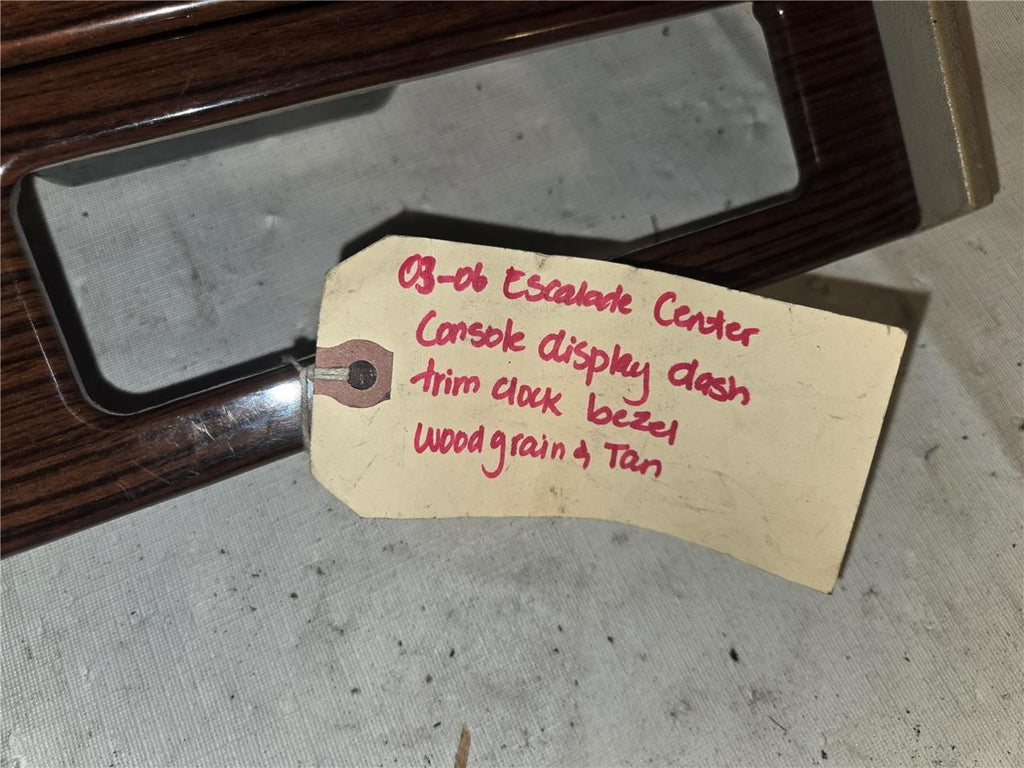 03-06 Escalade Center
Console display dash
trim clock bezel
Woodgrain & Tan